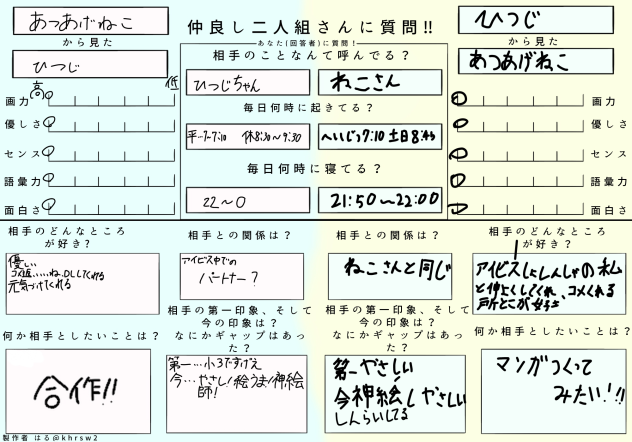 あつあげねこ
から見た
ひつじ
仲良し二人組さんに質問!!
あなた(回答者)に質問！
ひつじ
から見た
あつあげねこ
高
低
画力
優しさ
センス
語彙力
面白さ
相手のことなんて呼んでる？
ひつじちゃん
ねこさん
毎日何時に起きてる？
平…7~7:10 休8:30~9:30
へいじつ7:10 土日8:45
毎日何時に寝てる？
22~0
21:50~22:00
画力
優しさ
センス
語彙力
面白さ
相手のどんなところ
が好き？
優しい
コメ返……ね、DLしてくれる
元気づけてくれる
相手との関係は？
アイビス中での
パートナー？
相手との関係は？
ねこさんと同じ
相手のどんなところ
が好き？
アイビスしょしんしゃの私
と仲よくしてくれ、コメくれる
何か相手としたいことは？
合作!!
相手の第一印象、そして
今の印象は？
なにかギャップはあっ
た？
第一…小3ですげえ
今…やさしい！絵うま！神絵
師！
相手の第一印象、そして
今の印象は？
なにかギャップはあっ
た？
第一やさしい
今神絵しやさしい
しんらいしてる
何か相手としたいことは？
マンガつくって
みたい!!!
製作者 はる@khrsw2